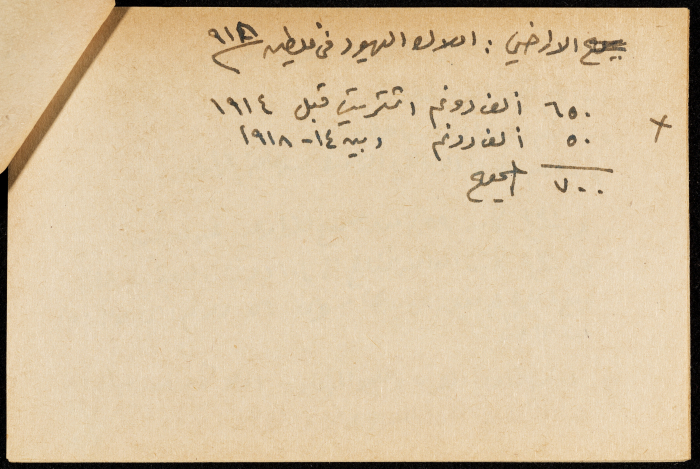 بيع الاراضي : املاك اليهود في فلسطين ٩١٨
٦٥٠ ألف دونم اشتريت قبل ١٩١٤
٥٠ ألف دونم وبين ١٤-١٩١٨
٧٠٠ المجموع
x